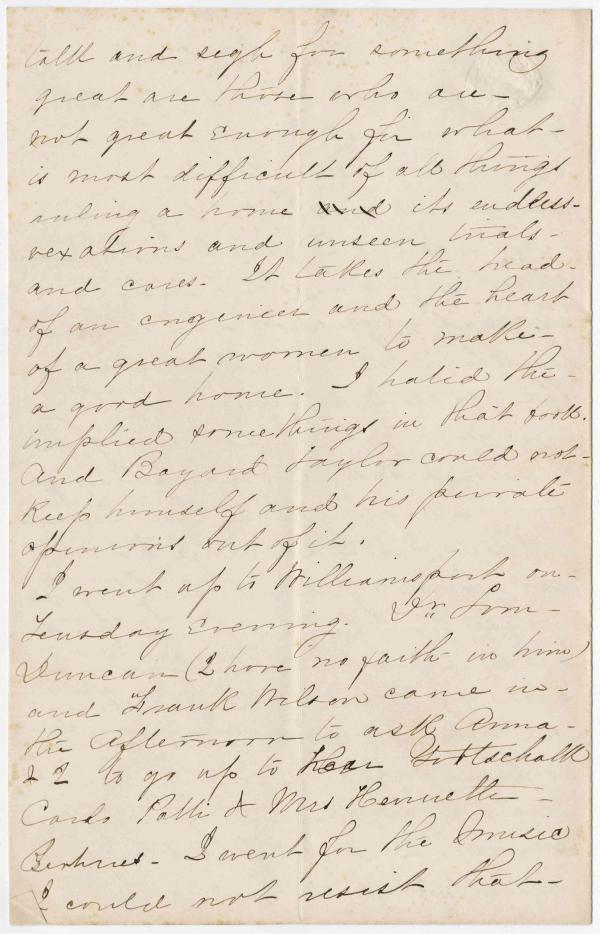 talk and sigh for something
great are those who are
not great enough for what
is most difficult of all things
ruling a home and its endless
vexations and unseen trials
and cares. It takes the head
of an engineer and the heart
of a great women to make
a good home. I hated the
implied somethings in that book.
And Bayard Taylor could not
keep himself and his private
opinions out of it.
I went up to Williamsport on
Teusday evening. Dr.
Duncan (I have no faith in him)
and Frank Wilson came in
the Afternoon to ask Anna
& I to go up to hear Gottschalk
Carlo Patti & Mrs Henrietta
Behrens. I went for the music
I could not resist that